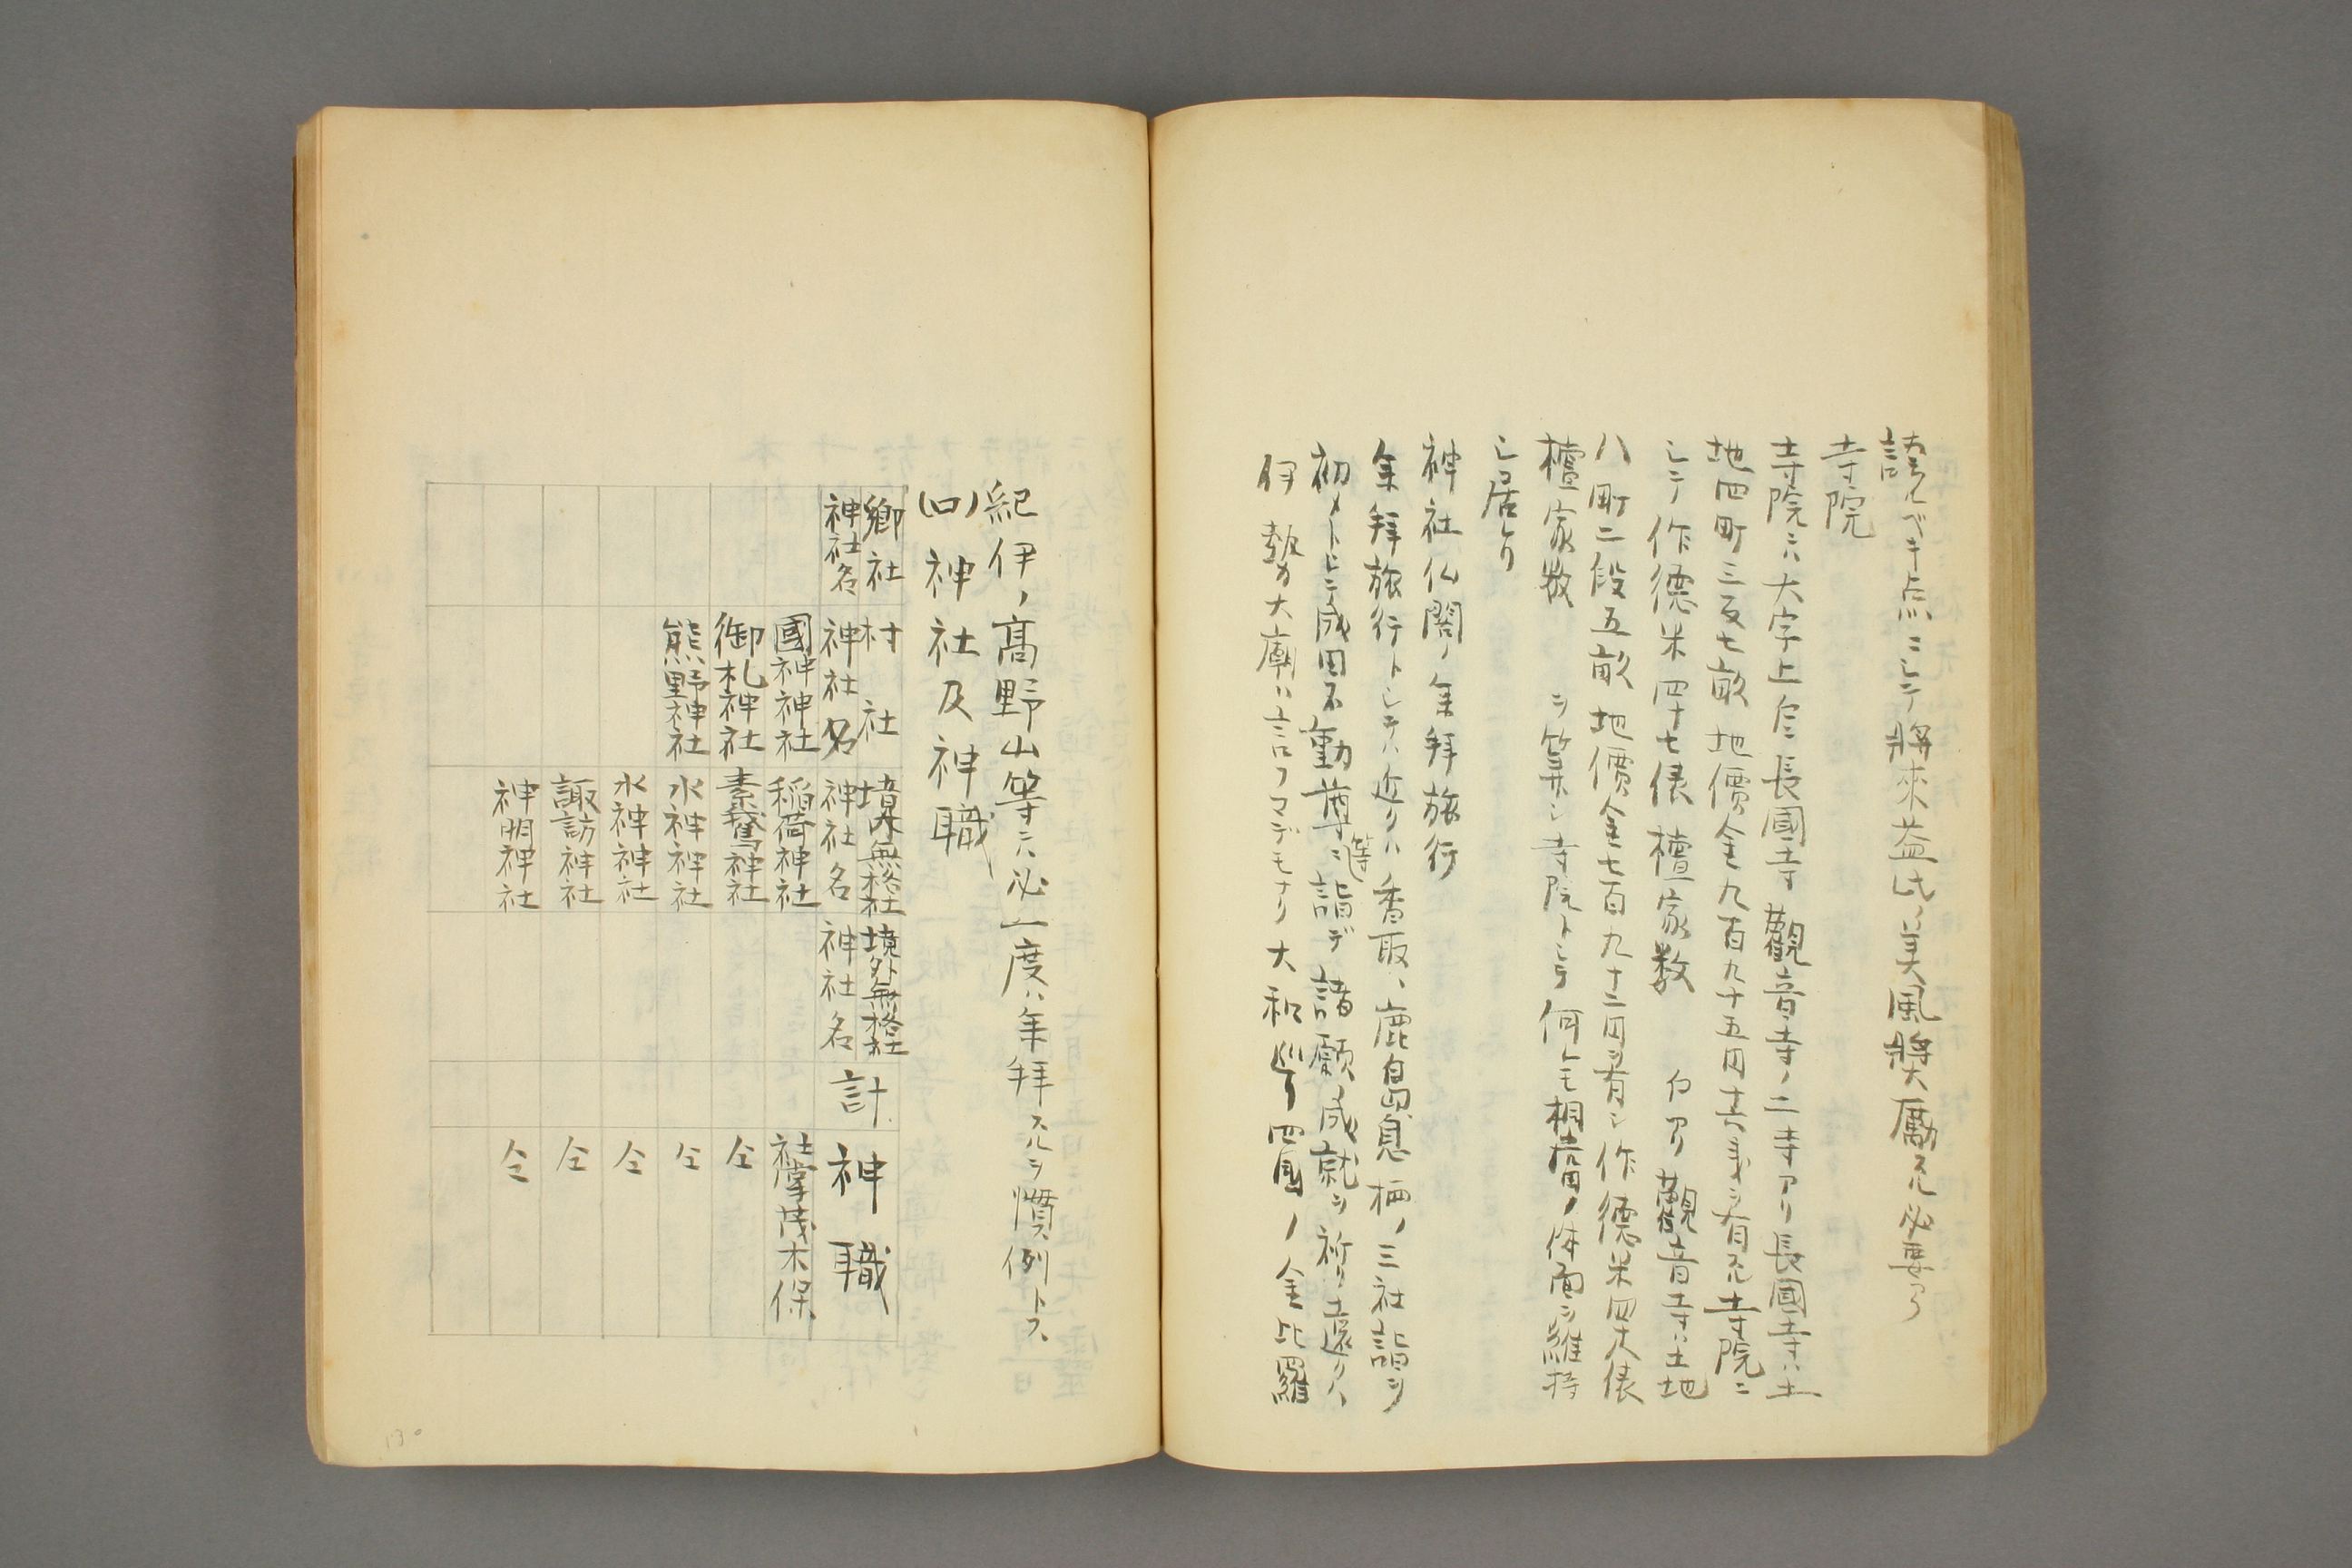 誇ルベキ点ニシテ將來益此ノ美風奬厲スル必要アリ
寺院
寺院ニハ大字上仁ニ長國寺觀音寺ノ二寺アリ長國寺ハ土
地四町三反七畝地價金九百九十五円六十弐ヲ有スル寺院ニ
シテ作德米四十七俵檀家数 アリ觀音寺ハ土地
八町二段五畝地價金七百九十二円ヲ有シ作德米四十八俵
檀家数 ヲ算シ寺院トシテ何レモ相當ノ体面ヲ維持
シ居レリ
神社仏閣ノ参拜旅行
参拜旅行トシテハ近クハ香取、鹿島、息栖ノ三社詣ヲ
初メトシテ成田不動尊等ニ詣デ諸願ノ成就ヲ祈リ遠クハ、
伊勢ノ大廟ハ言フマデモナク大和巡リ四國ノ金比羅
紀伊ノ高野山等ニハ必一度ハ参拜スルヲ慣例トス、
(ロ)神社及神職
鄉社 村社 境内無格社 境外無格社 計 神職
神社名 神社名 神社名 神社名
國神神社 稲荷神社 社掌茂木保
御札神社 素鵞神社 仝
熊野神社 水神神社 仝
水神神社 仝
諏訪神社 仝
神明神社 仝
130